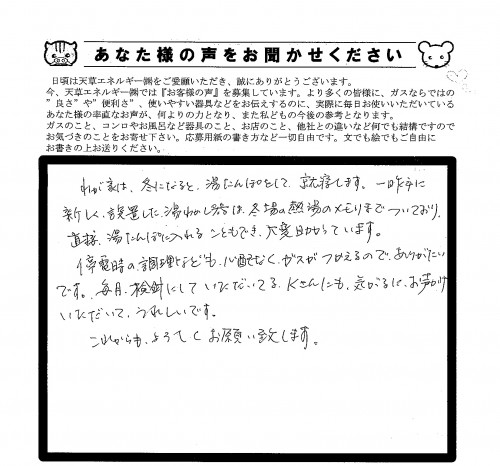 あなた様の声をお聞かせください
日頃は天草エネルギー㈱をご愛顧いただき、誠にありがとうございます。
今、天草エネルギー㈱では『お客様の声』を募集しています。より多くの皆様に、ガスならではの
”良さ”や”便利さ”、使いやすい器具などをお伝えするのに、実際に毎日お使いいただいている
あなた様の率直なお声が、何よりの力となり、また私どもの今後の参考となります。
ガスのこと、コンロやお風呂など器具のこと、お店のこと、他社との違いなど何でも結構ですので
お気づきのことをお寄せ下さい。応募用紙の書き方など一切自由です。文でも絵でもご自由に
お書きの上お送りください。
わが家は、冬になると、湯たんぽをして、就寝します。一昨年に
新しく、設置した、湯わかし器は、冬場の熱湯のメモリまでついており、
直接、湯たんぽに入れることもでき、大変助かっています。
停電時の調理なども、心配なく、ガスがつかえるので、ありがたい
です。毎月、検針にして いただいてる、Kさんにも、気がるに、お声かけ
いただいて、うれしいです。
これからも、よろしく お願い致します。